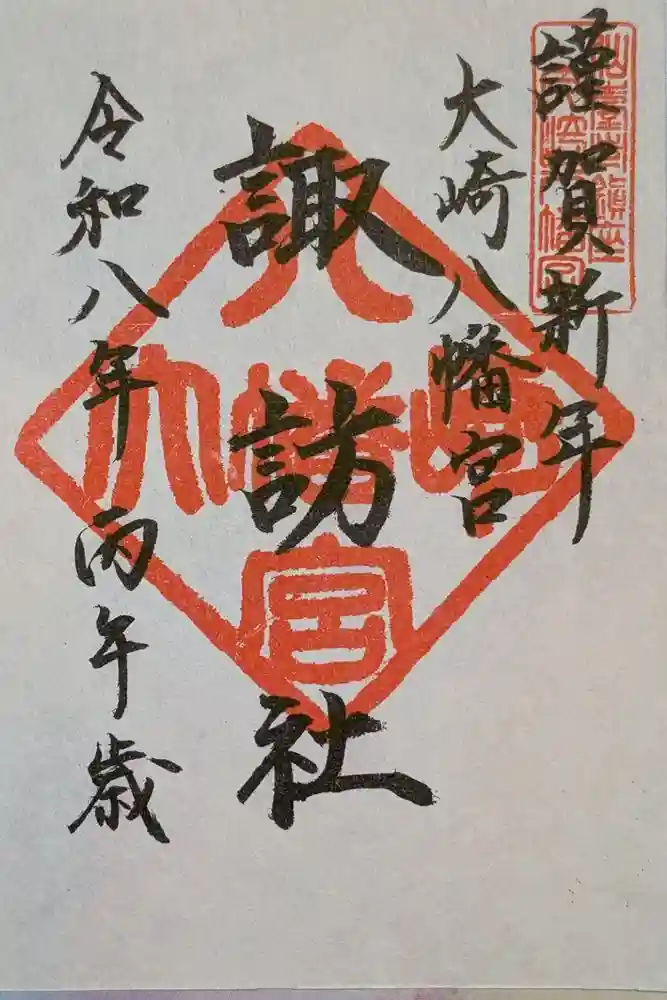 謹賀新年
大崎八幡宮
諏訪社
令和八年丙午歳
大崎八幡宮